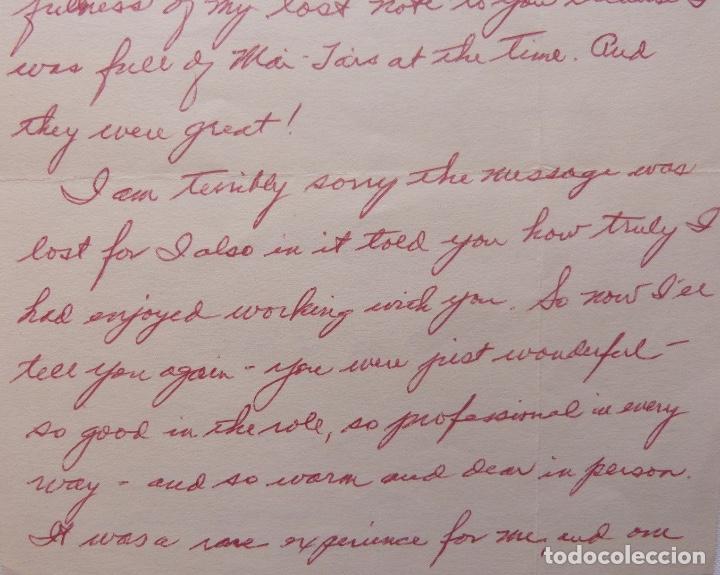 fulness of my lost note to you because I
was full of Mai-Tais at the time. And
they were great!
I am terribly sorry the message was
lost for I also in it told you how truly I
had enjoyed working with you. So now I'll
tell you again - you were just wonderful -
so good in the role, so professional in every
way - and so warm and dear in person.
It was a rare experience for me, and one
todocoleccion